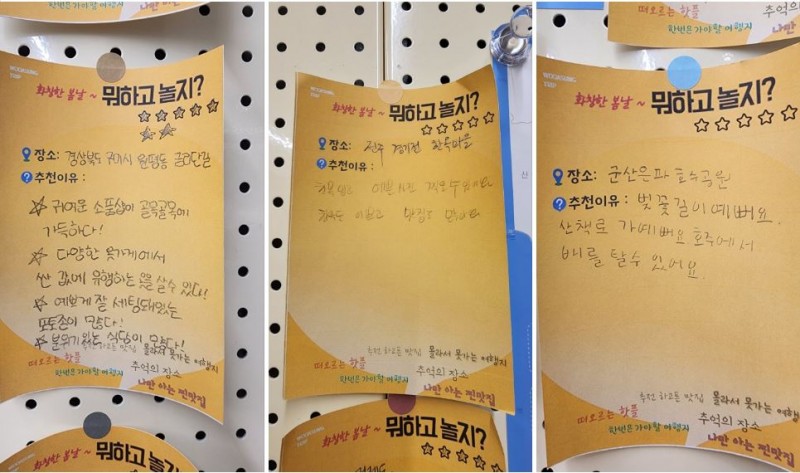 추억의
한번은 가야할 여행지
나만
WOOKSUNG
TRIP
화창한 봄날 ~ 뭐하고 놀지?
장소: 경상북도 구미시 원평동 금리단길
추천이유:
귀여운 소품샵이 골목골목에
가득하다!
다양한 옷가게에서
싼 값에 유행하는 옷을 살수 있다!
예쁘게 잘 세팅돼있는
포토존이 많다!
분위기있는 식당이 많다!
추천 하고픈 맛집 몰라서 못가는 여행지
떠오르는 핫플
추억의 장소
한번은 가야할 여행지
나만 아는 찐맛집
화창한 봄날 ~ 뭐하고 놀지?
화창한 봄날 ~ 뭐하고 놀지?
장소: 전주 경기전 한옥마을
추천이유:
추천 하고픈 맛집 몰라서 못가는 여행지
떠오르는 핫플
추억의 장소
한번은 가야할 여행지
나만 아는 찐맛집
화창한 봄날 ~ 뭐하고 놀지?
화창한 봄날 ~ 뭐하고 놀지?
장소: 군산은파 호수공원
추천이유: 벚꽃길이 예뻐요.
산책로가 예뻐요 호주에서
배를 탈수 있어요.
추천 하고픈 맛집 몰라서 못가는 여행지
떠오르는 핫플
추억의 장소
한번은 가야할 여행지
나만 아는 찐맛집